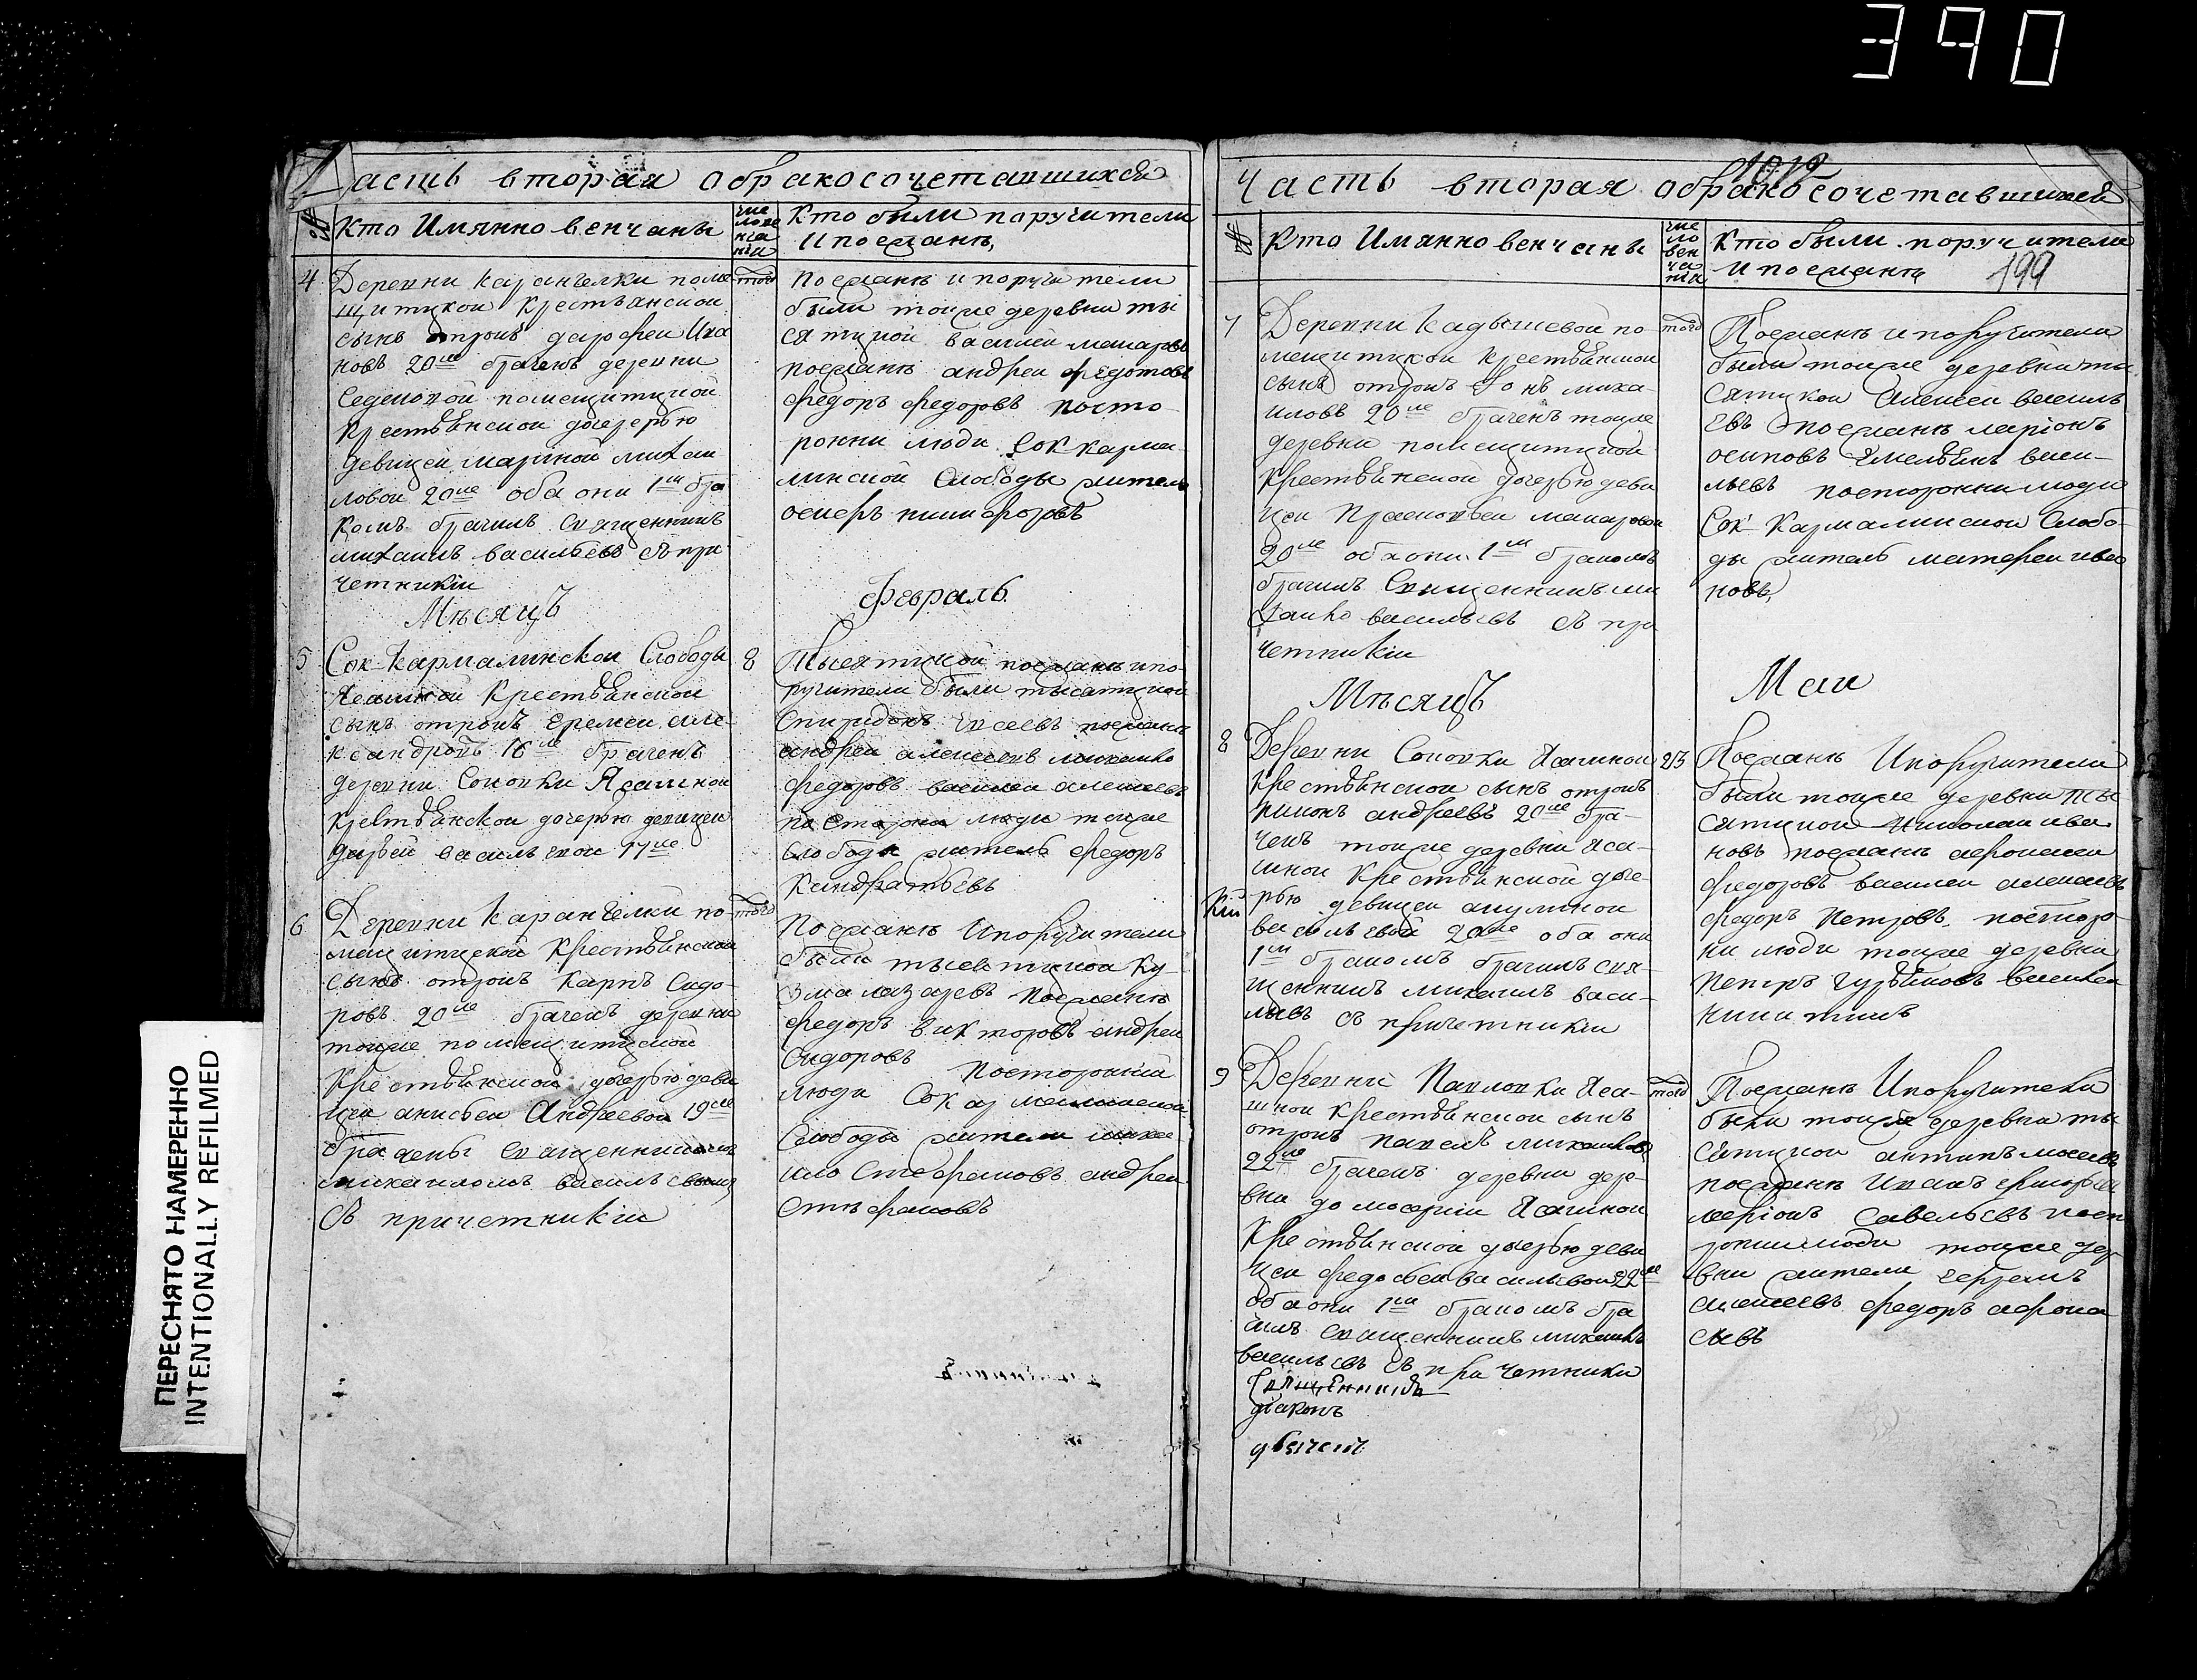 390
Часть вторая обракосочетавшихся
№
Кто Имянно венчаны
Кто были поручители
и поезжанъ,
4
Деревни Карангелки поме
щитцкой Крестьянской
сынъ отрокъ дарофеи Ива
новъ 20 ле браченъ деревни
помещитцкой
Крестьянской дочерью
девицей мариной михаи
ловой 20 ле оба они 1 м бра
комъ брачилъ Священникъ
михаилъ васильевъ съ при
четникіи
того
поезжанъ и поручители
были тоиже деревни ты
сятцкой василеи макаровъ
поезжанъ андреи федотовъ
федоръ федоровъ посто
ронни люди Сок карма
линской Слободы житель
Мѣсяцъ
Февраль
5
Сок Кармалинской Слободы
Ясашной Крестьянской
сынъ отрокъ еремеи але
ксандровъ 16 ле браченъ
деревни Соковки Ясашной
крестьянской дочерью девицеи
дарьей васильевой 17 ле
8
Тысятцкой поезжанъ и по
ручители были тысятцкой
Спиридонъ поезжанъ
андреи алексеевъ михаило
федоровъ василеи алексеевъ
посторони люди тоиже
Слободы житель федоръ
Кандратьевъ
6
Деревни Карангелки по
мещитцкой Крестьянской
сынъ отрокъ Карпъ Сидо
ровъ 20 ле браченъ деревни
тоиже помещитцкой
Крестьянской дочерью деви
цеи анисьеи Андреевой 19 ле
брачены священникомъ
михаиломъ васильевымъ
съ причетникіи
того
Поезжанъ Ипоручители
были тысятцкои Ку
зма лазаревъ поезжанъ
федоръ викторовъ андреи
Сидоровъ посторонніи
люди Сок
Слободы жители михаи
ило Стефановъ андреи
Стефановъ
Часть вторая обракосочетавшихся
1019
№
Кто Имянно венчаны
чис
ло
вен
ча
нія
Кто были поручители
И поезжанъ
199
7
Деревни Кадышевой по
мещитцкой крестьянской
сынъ отрокъ миха
иловъ 20 ле браченъ тоиже
деревни помещитцкой
Крестьянской дочерью деви
цеи Прасковьеи макаровой
20 ле оба они 1 м бракомъ
брачилъ Священникъ ми
хаило васильевъ съ при
четникіи
того
Поезжанъ и поручители
были тоиже деревни ты
сятцкои Алексеи василь
евъ поезжанъ ларіонъ
осиповъ Емельянъ васи
льевъ посторонни люди
Сок Кармалинской Слобо
ды житель матвеи ива
новъ,
Мѣсяцъ
Маи
8
Деревни Соковки Ясашной
крестьянской сынъ отрокъ
андреевъ 20 ле бра
ченъ тоиже деревни яса
шной крестьянской доче
рью девицеи акулиной
васильевой 20 ле оба они
1 м бракомъ брачилъ свя
щенникъ михаилъ васи
льевъ съ причетникіи
Поезжанъ Ипоручители
были тоиже деревни ты
сятцкои Николаи ива
новъ поезжанъ афонасеи
федоровъ василеи алексеевъ
федоръ Петровъ, посторо
ни люди тоиже деревни
петръ василеи
никитинъ
9
Деревни Павловки Яса
шной Крестьянской сынъ
отрокъ павелъ михаиловъ
22 ле браченъ деревни дере
вни домосеркіи Ясашной
Крестьянской дочерью деви
цеи федосьеи васильевой 22 ле
оба они 1 м бракомъ бра
чилъ священникъ михаилъ
васильевъ съ причетники
Священникъ
дьяконъ
дьячекъ
того
Поезжанъ Ипоручители
были тоиже деревни ты
сятцкои антипъ мосеевъ
поезжанъ Иванъ
ларіонъ Савельевъ посто
ронни люди тоиже дер
вни жители
алексеевъ федоръ афона
сьевъ
ПЕРЕСНЯТО НАМЕРЕННО
INTENTIONALLY REFILMED